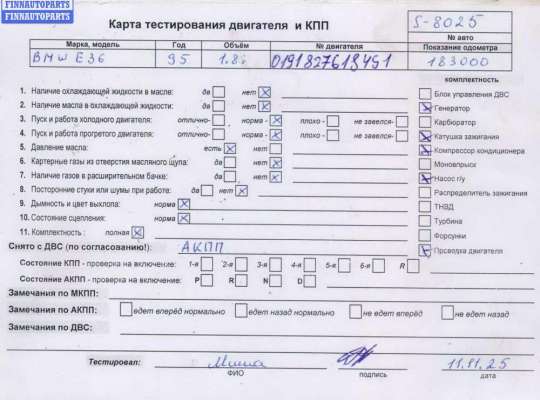 FINNAUTOPARTS
FINNAUTOPARTS
Карта тестирования двигателя и КПП
S-8025
№ авто
Марка, модель Год Объём № двигателя Показание одометра
BMW E36 95 1.8i 0191827619451 183000
КОМПЛЕКТНОСТЬ
1. Наличие охлаждающей жидкости в масле: да нет
Блок управления ДВС
2. Наличие масла в охлаждающей жидкости: да нет
Генератор
3. Пуск и работа холодного двигателя: отлично- норма - плохо - не завелся-
Карбюратор
4. Пуск и работа прогретого двигателя: отлично- норма - плохо - не завелся-
Катушка зажигания
5. Давление масла: есть нет
Компрессор кондиционера
6. Картерные газы из отверстия масляного щупа: да нет
Моновпрыск
7. Наличие газов в расширительном бачке: да нет
Насос г/у
8. Посторонние стуки или шумы при работе: да нет
Распределитель зажигания
9. Дымность и цвет выхлопа: норма
ТНВД
10. Состояние сцепления: норма
Турбина
11. Комплектность : полная
Форсунки
Снято с ДВС (по согласованию!): АКПП
Проводка двигателя
Состояние КПП - проверка на включение: 1-я 2-я 3-я 4-я 5-я 6-я R
Состояние АКПП - проверка на включение: P R N D
Замечания по МКПП:
Замечания по АКПП: едет вперёд нормально едет назад нормально не едет вперёд не едет назад
Замечания по ДВС:
Тестировал: Миша 11.11.25
ФИО подпись дата